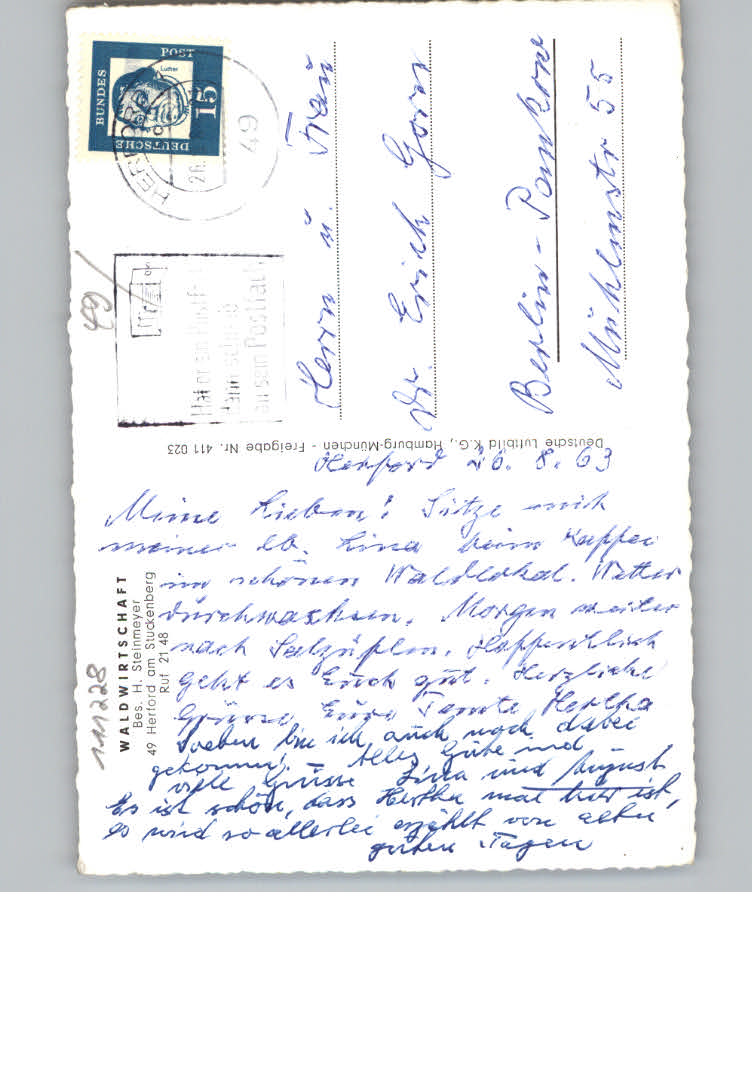 Herford 26. 8. 63
Meine Lieben! Sitze mit
meiner lb. Lina beim Kaffee
im schönen Waldlokal. Wetter
durchwachsen. Morgen weiter
nach Salzuflen. Hoffentlich
geht es Euch gut. Herzliche
Grüsse Eure Tante Hertha
Soeben bin ich auch noch dabei
gekommen. – Alles Gute und
viele Grüsse Lina und August
Es ist schön, dass Hertha mal hier ist,
es wird so allerlei erzählt von alten
guten Tagen
WALDWIRTSCHAFT
Bes. H. Steinmeyer
49 Herford am Stuckenberg
Ruf 21 48
111228
Deutsche Luftbild K.G., Hamburg-München - Freigabe Nr. 411 023
Herrn u. Frau
Dr. Erich Gorn
Berlin-Pankow
Mühlenstr 55
DEUTSCHE
BUNDES
POST
Luther
15
HERFORD
49
26.
Hat er ein Postf-
dann schreib
an sein Postfach
49/